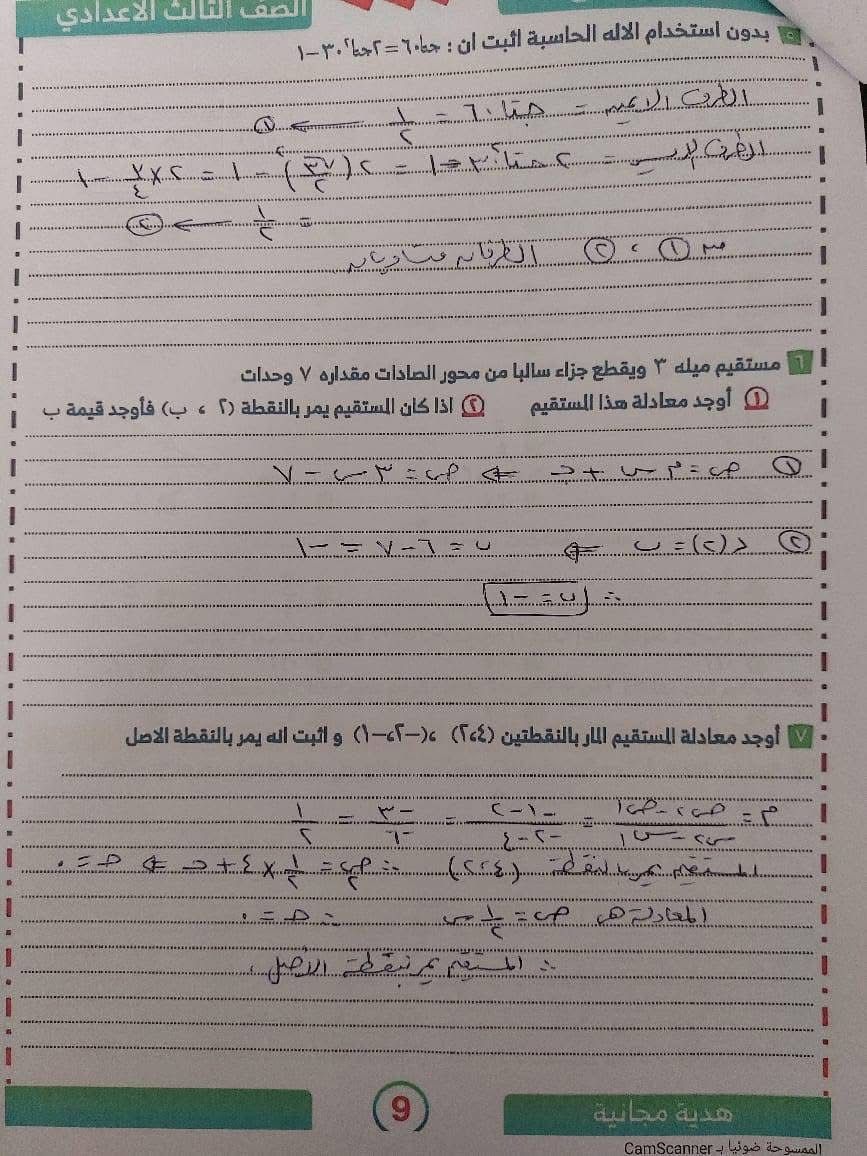 الصف الثالث الاعدادي
٥ بدون استخدام الاله الحاسبة اثبت ان : جتا٦٠=٢جتا٣٠٢-١
الطرف الايمن = جتا٦٠ = ١/٢ ← ①
الطرف الايسر = ٢جتا٢٣٠-١ = ٢(√٣/٢)٢ - ١ = ٢×٣/٤ - ١
= ١/٢ ← ②
من ① ، ② الطرفان متساويان
٦ مستقيم ميله ٣ ويقطع جزاء سالبا من محور الصادات مقداره ٧ وحدات
١ أوجد معادلة هذا المستقيم ٢ اذا كان المستقيم يمر بالنقطة (٢ ، ب) فأوجد قيمة ب
① ص = م س + جـ ⇐ ص = ٣س - ٧
② د(٢) = ب ⇐ ب = ٦ - ٧ = -١
∴ ب = -١
٧ أوجد معادلة المستقيم المار بالنقطتين (٢،٤) ،(-٢،-١) و اثبت انه يمر بالنقطة الاصل
م = ص٢-ص١/س٢-س١ = -١-٢/-٢-٤ = -٣/-٦ = ١/٢
المستقيم يمر بالنقطة (٢،٤) ∴ ص = ١/٢ × ٤ + جـ ⇐ جـ = ٠
المعادلة هى ص = ١/٢ س ∵ جـ = ٠
∴ المستقيم يمر بنقطة الأصل
9
هدية مجانية
الممسوحة ضوئيا بـ CamScanner